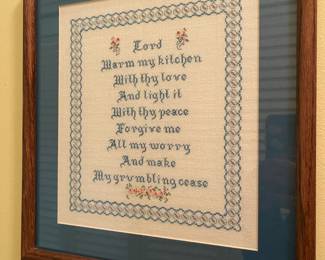 Lord
Warm my kitchen
With thy love
And light it
With thy peace
Forgive me
All my worry
And make
My grumbling cease